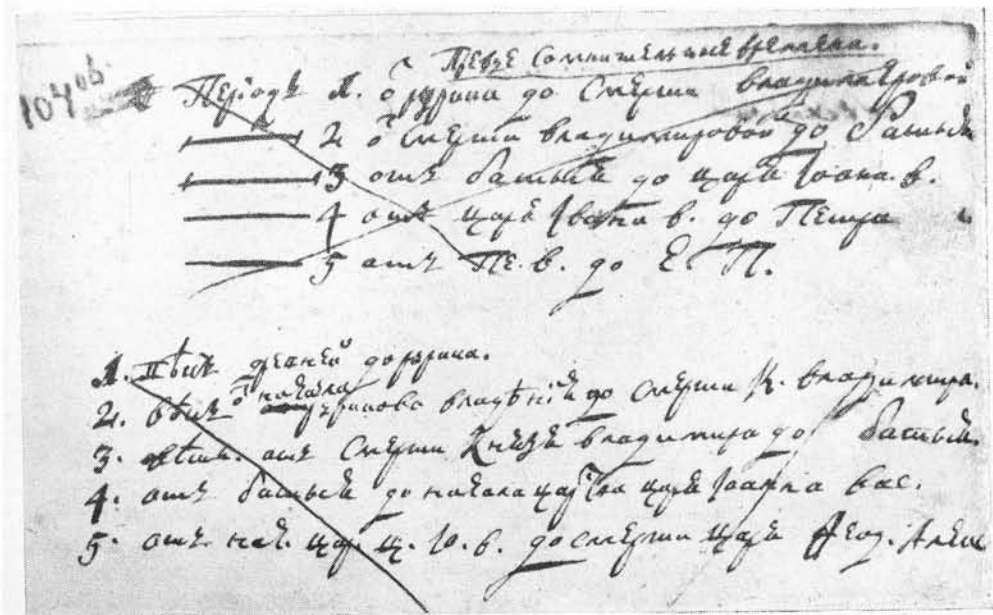 Прежде сомнительные времена.
104 об.
Періодъ 1. о рурика до смерти владимировой
2 о смерти владимировой до батыя
3 отъ батыя до царя Іоана. в.
4 отъ царя Ивана в. до Петра
5 отъ Пе. в. до Е. П.
1. вѣкъ древней до рурика.
2. вѣкъ о начала рурикова владѣнія до смерти К. владимира.
3. вѣкъ. отъ смерти Князя владимира до батыя.
4. отъ батыя до начала царства царя Іоанна вас.
5. отъ нач. цар. ц. Ів. в. до смерти царя Ѳеод. Алекс